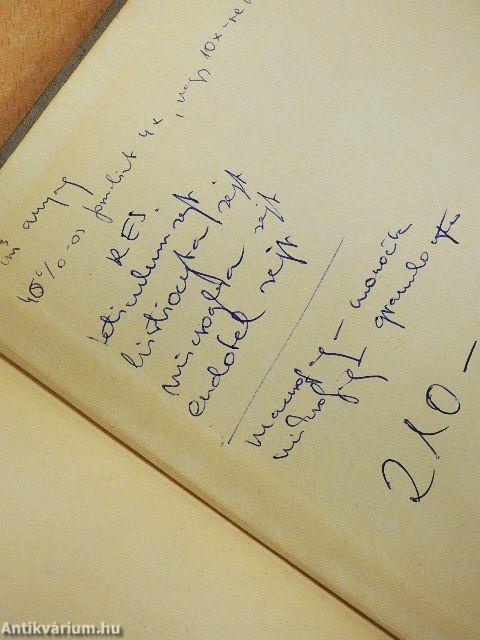 cm³ anyag
10%-os formalint 4x, vagy 10x-re
RES.
reticulum sejt
histiocyta sejt
microglia sejt
endotel sejt
macrofág – monocita
mikrofág – granulocyta
210 –
Antikvárium.hu